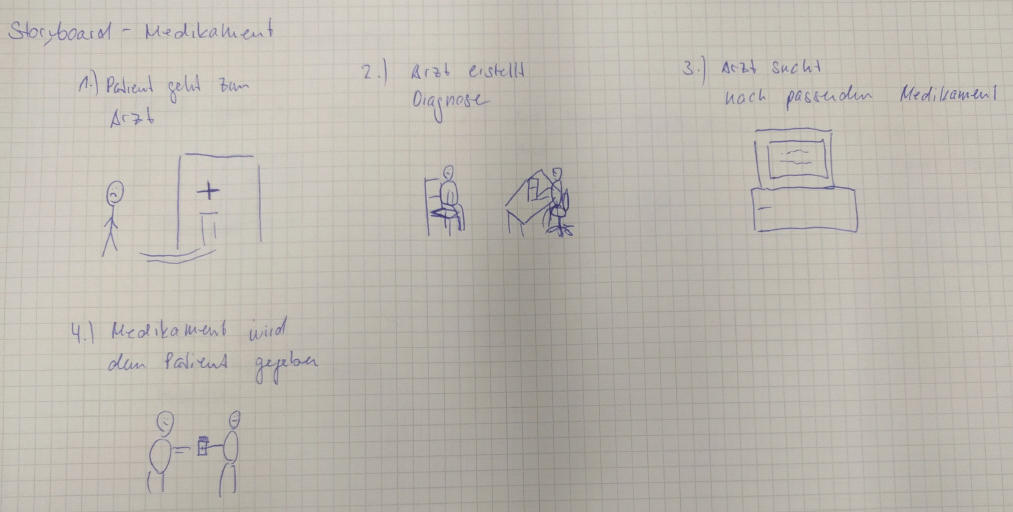 Storyboard - Medikament
1.) Patient geht zum
Arzt
2.) Arzt erstellt
Diagnose
3.) Arzt sucht
nach passenden Medikament
4.) Medikament wird
dem Patient gegeben